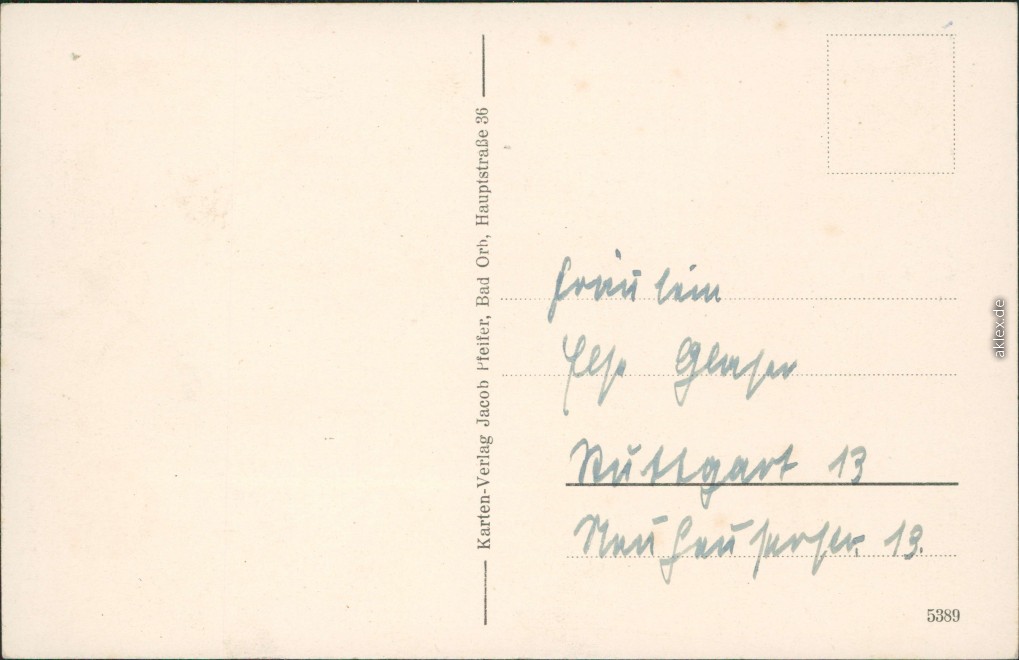 Karten-Verlag Jacob Pfeifer, Bad Orb, Hauptstraße 36
Fräulein
Else Glaser
Stuttgart 13
Neuhauserstr. 13.
5389
aklex.de